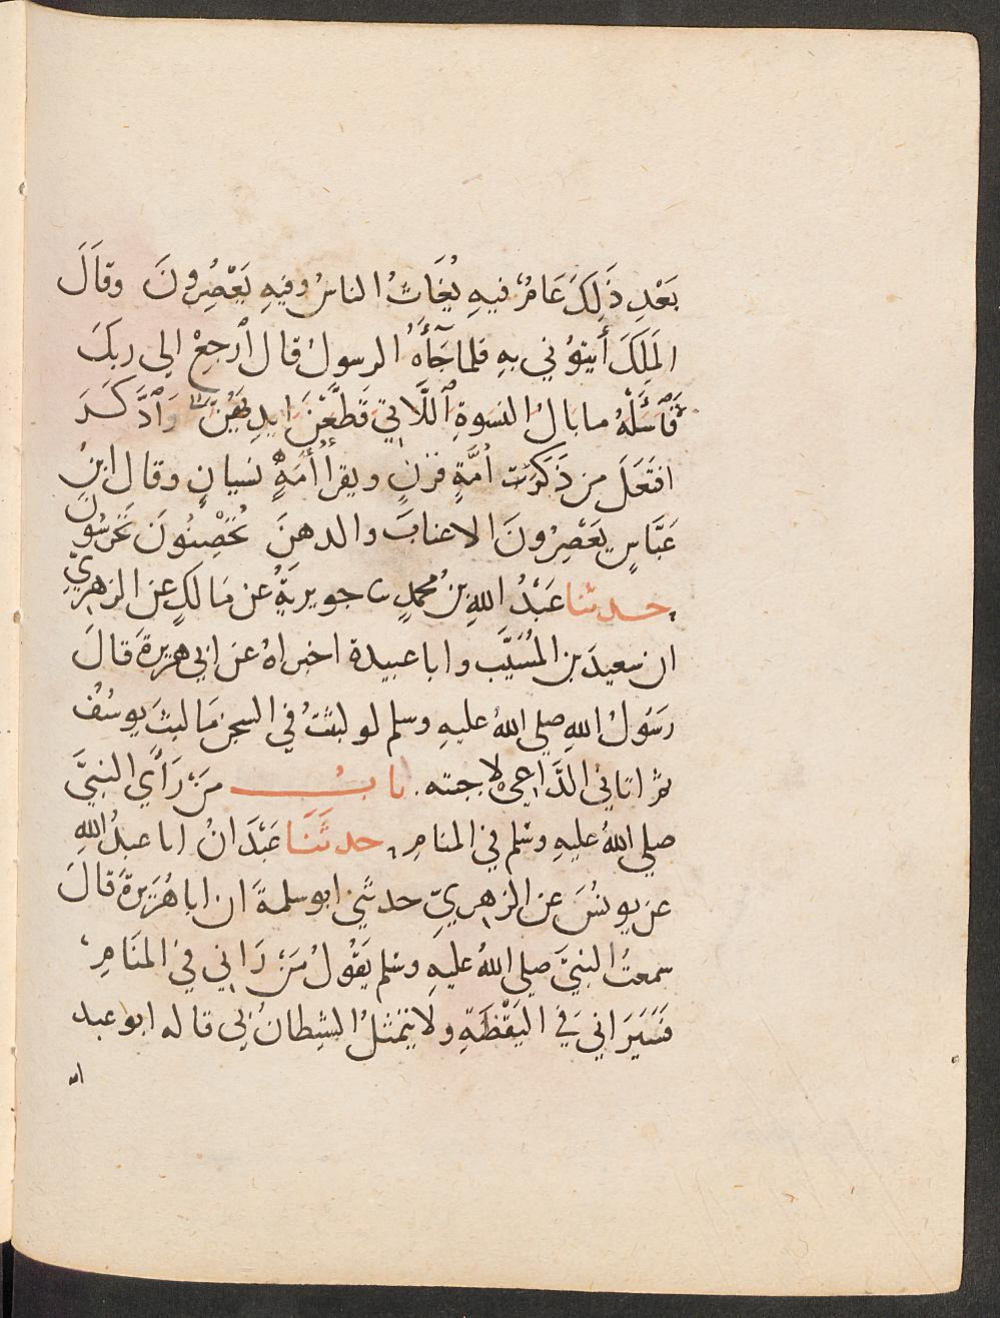 بَعْدِ ذَلِكَ عَامٌ فيهِ يُغَاثُ الناسُ وفيهِ يَعْصِرُونَ وقَالَ
المَلِكَ أيتوُني بهِ فلما جَآءَهُ الرسولُ قال ٱرجِعْ الى ربكَ
فَٱسْئَلْهُ ما بالُ النسوةِ ٱللَّاتي قَطَّعْنَ ايدِيَهُنَّ وَٱدَّكَرَ
افتَعَلَ من ذَكَرْت اُمَّةٍ قرنٍ ويقرأ أَمَهٍ نسيانٍ وقال ابنُ
عَبَّاسٍ يَعْصِرُونَ الاعنابَ والدهنَ تُحْصِنُونَ تَحْرسُونَ
حدثنا عَبْدُ اللهِ بنُ محمدٍ ثنا جويريةُ عن مَالكٍ عن الزهريِّ
ان سعيدَ بن المُسَيَّب وابا عبيدة اخبراهُ عن ابي هريرةَ قالَ
رَسُولُ اللهِ صلى اللهُ عليهِ وسلم لو لبثتُ في السجن مَا لبثَ يوسُفُ
ثم اتاني الدَّاعي لاجبته. بابُ مَنْ رَأَي النبيَّ
صلى اللهُ عليهِ وسلم في المنامِ، حدثَنَا عَبْدَانُ انا عبدُ اللهِ
عن يونسَ عن الزهريِّ حدثني ابو سلمةَ ان ابا هُرَيرةَ قالَ
سمعتُ النبيَّ صلى اللهُ عليهِ وسلم يَقُولُ مَنْ رَاني في المنَامِ،
فَسَيَرَاني فَي اليَقْظَةِ ولَا يتمثلُ الشيطانُ بي قاله ابو عبد
الله